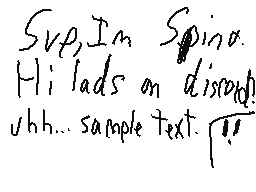 Sup, Im Spino.
Hi lads on discord!
uhh... sample text.